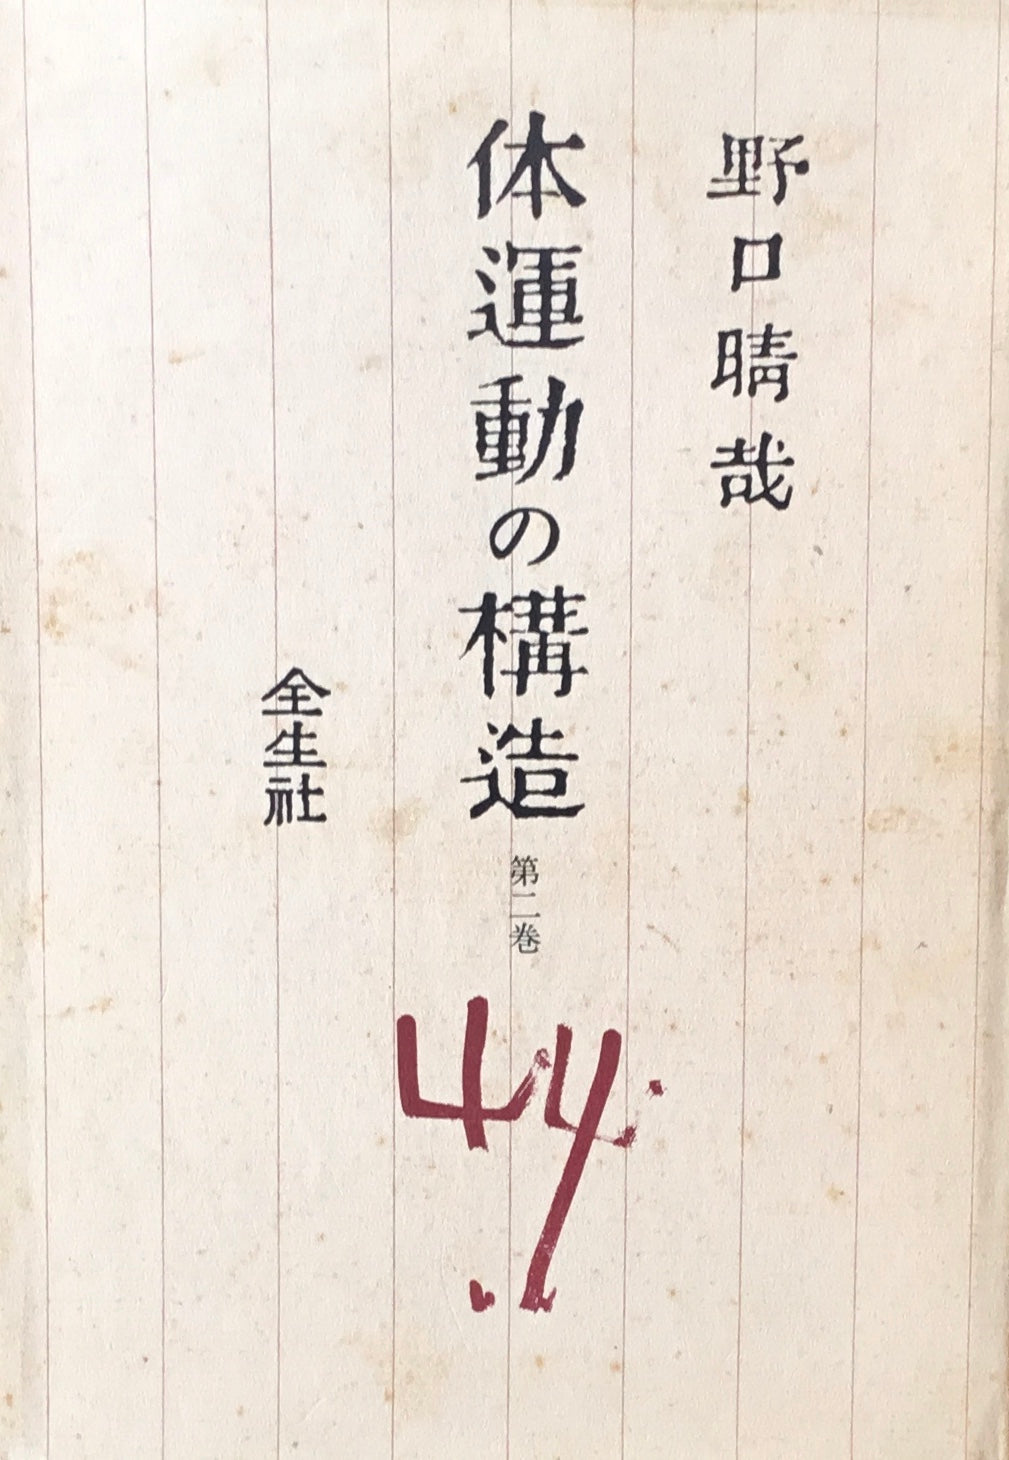 野口晴哉
体運動の構造
第二巻
全生社